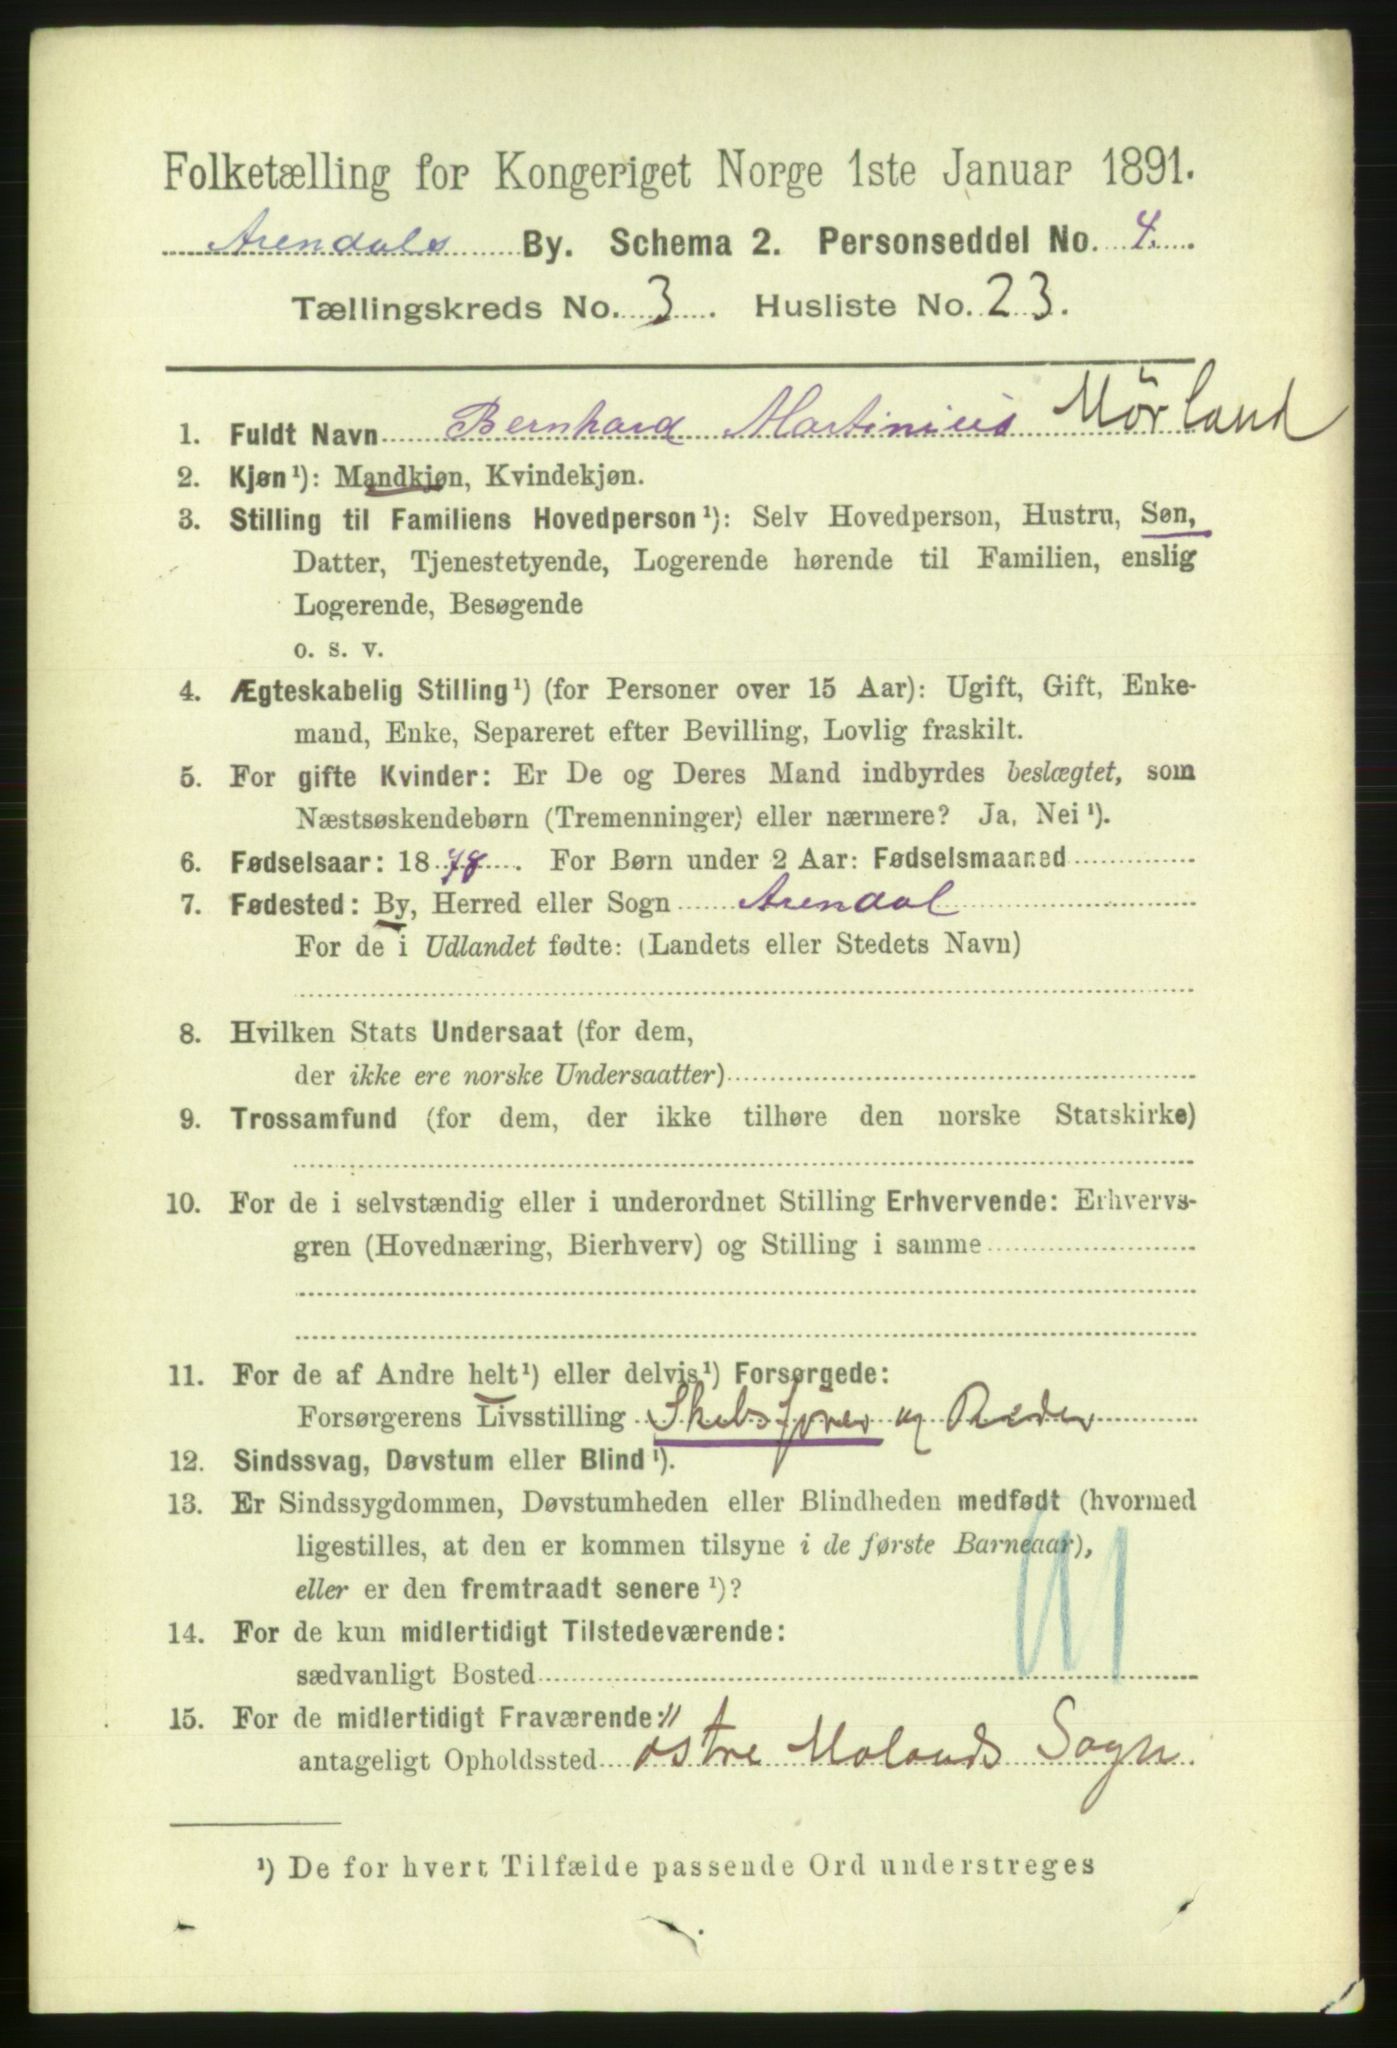 Folketælling for Kongeriget Norge 1ste Januar 1891.
Arendals By. Schema 2. Personseddel No. 4.
Tællingskreds No. 3. Husliste No. 23.
1. Fuldt Navn Bernhard Martinius Mörland
2. Kjøn¹): Mandkjøn, Kvindekjøn.
3. Stilling til Familiens Hovedperson¹): Selv Hovedperson, Hustru, Søn,
Datter, Tjenestetyende, Logerende hørende til Familien, enslig
Logerende, Besøgende
o. s. v.
4. Ægteskabelig Stilling¹) (for Personer over 15 Aar): Ugift, Gift, Enke-
mand, Enke, Separeret efter Bevilling, Lovlig fraskilt.
5. For gifte Kvinder: Er De og Deres Mand indbyrdes beslægtet, som
Næstsøskendebørn (Tremenninger) eller nærmere? Ja, Nei¹).
6. Fødselsaar: 1878. For Børn under 2 Aar: Fødselsmaaned
7. Fødested: By, Herred eller Sogn Arendal
For de i Udlandet fødte: (Landets eller Stedets Navn)
8. Hvilken Stats Undersaat (for dem,
der ikke ere norske Undersaatter)
9. Trossamfund (for dem, der ikke tilhøre den norske Statskirke)
10. For de i selvstændig eller i underordnet Stilling Erhvervende: Erhvervs-
gren (Hovednæring, Bierhverv) og Stilling i samme
11. For de af Andre helt¹) eller delvis¹) Forsørgede:
Forsørgerens Livsstilling Skibsfører og Reder
12. Sindssvag, Døvstum eller Blind¹).
13. Er Sindssygdommen, Døvstumheden eller Blindheden medfødt (hvormed
ligestilles, at den er kommen tilsyne i de første Barneaar),
eller er den fremtraadt senere¹)?
14. For de kun midlertidigt Tilstedeværende:
sædvanligt Bosted
15. For de midlertidigt Fraværende:
antageligt Opholdssted östre Molands Sogn.
¹) De for hvert Tilfælde passende Ord understreges